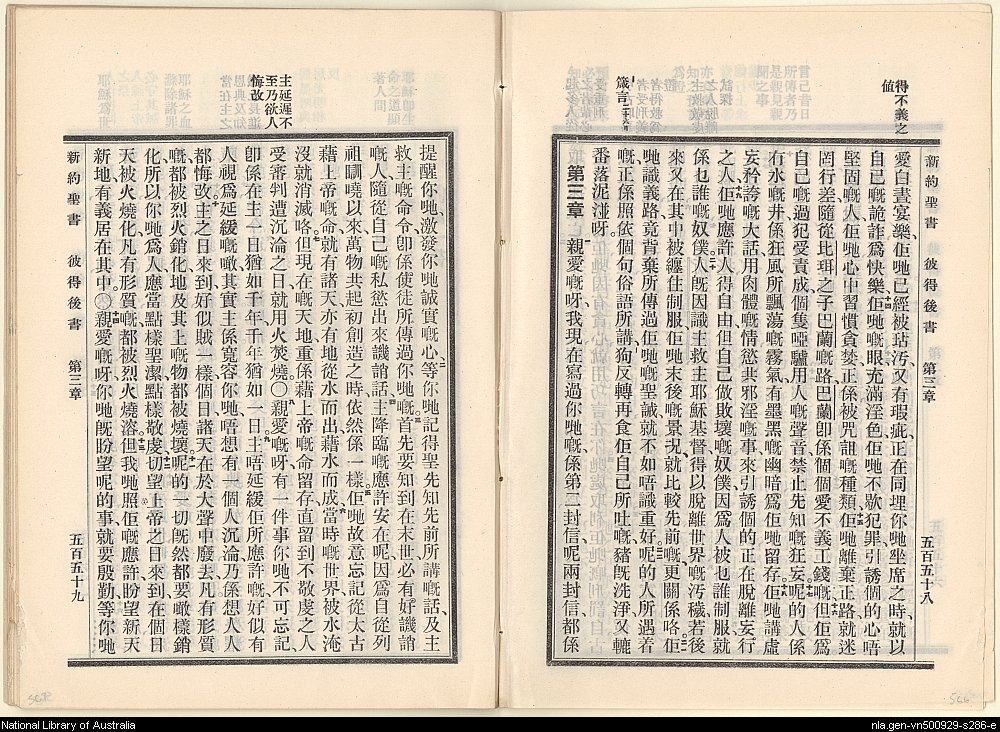 得不義之
值
箴言二十六章
新約聖書 彼得後書 第三章 五百五十八
愛白晝宴樂佢哋已經被玷汚又有瑕疵正在同埋你哋坐席之時就以
自己嘅詭詐爲快樂佢哋嘅眼充滿淫色佢哋不歇犯罪引誘個的心唔
堅固嘅人佢哋心中習慣貪婪正係被咒詛嘅種類佢哋離棄正路就迷
罔行差隨從比珥之子巴蘭嘅路巴蘭卽係個個愛不義工錢嘅但佢爲
自己嘅過犯受責成個隻啞驢用人嘅聲音禁止先知嘅狂妄呢的人係
冇水嘅井係狂風所飄蕩嘅霧氣有墨黑嘅幽暗爲佢哋留存佢哋講虛
妄矜誇嘅大話用肉體嘅情慾共邪淫嘅事來引誘個的正在脫離妄行
之人佢哋應許人得自由但自己做敗壞嘅奴僕因爲人被乜誰制服就
係乜誰嘅奴僕人旣因識主救主耶穌基督得以脫離世界嘅汚穢若後
來又在其中被纏住制服佢哋末後嘅景况就比較先前嘅更關係咯佢
哋識義路竟背棄所傳過佢哋嘅聖誡就不如唔識重好呢的人所遇着
嘅正係照依個句俗語所講狗反轉再食佢自己所吐嘅豬旣洗淨又轆
番落泥湴呀
第三章 親愛嘅呀我現在寫過你哋嘅係第二封信呢兩封信都係
主延遲不
至乃欲人
悔改
提醒你哋激發你哋誠實嘅心等你哋記得聖先知先前所講嘅話及主
救主嘅命令卽係使徒所傳過你哋嘅首先要知到在末世必有好譏誚
嘅人隨從自己嘅私慾出來譏誚話主降臨嘅應許安在呢因爲自從列
祖瞓曉以來萬物共起初創造之時依然係一樣佢哋故意忘記從太古
藉上帝嘅命就有諸天亦有地從水而出藉水而成當時嘅世界被水淹
沒就消滅咯但現在嘅天地重係藉上帝嘅命留存直留到不敬虔之人
受審判遭沉淪之日就用火焚燒〇親愛嘅呀有一件事你哋不可忘記
卽係在主一日猶如千年千年猶如一日主唔延緩佢所應許嘅好似有
人視爲延緩嘅噉其實主係寬容你哋唔想有一個人沉淪乃係想人人
都悔改主之日來到好似賊一樣個日諸天在於大聲中廢去凡有形質
嘅都被烈火銷化地及其上嘅物都被燒壞呢的一切旣然都要噉樣銷
化所以你哋爲人應當點樣聖潔點樣敬虔切望上帝之日來到在個日
天被火燒化凡有形質嘅都被烈火燒溶但我哋照佢嘅應許盼望新天
新地有義居在其中〇親愛嘅呀你哋旣盼望呢的事就要殷勤等你哋
新約聖書 彼得後書 第三章 五百五十九
National Library of Australia
nla.gen-vn500929-s286-e